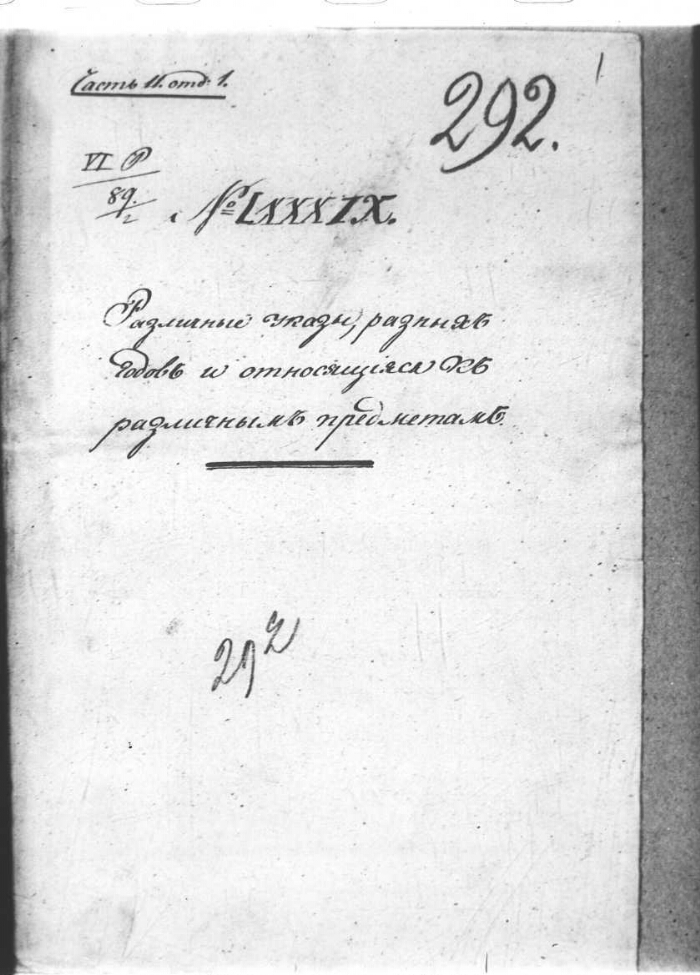 Часть 11. отд. 1.
292.
1
VI Р
89./2
№ LXXXIX.
Различные указы, разныхъ
годовъ и относящіяся къ
различнымъ предметамъ.
292